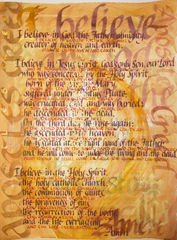 I believe
I believe in God, the Father almighty,
creator of heaven and earth.
I believe in Jesus Christ, God's only Son, our Lord
who was conceived by the Holy Spirit,
born of the Virgin Mary,
suffered under Pontius Pilate,
was crucified, died, and was buried;
he descended to the dead.
On the third day he rose again;
he ascended into heaven,
he is seated at the right hand of the Father,
and he will come to judge the living and the dead.
I believe in the Holy Spirit,
the holy catholic Church,
the communion of saints,
the forgiveness of sins,
the resurrection of the body,
and the life everlasting.
Amen